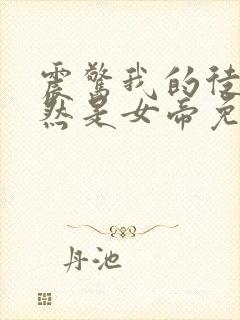 震惊我的徒
然是女帝免
丹池